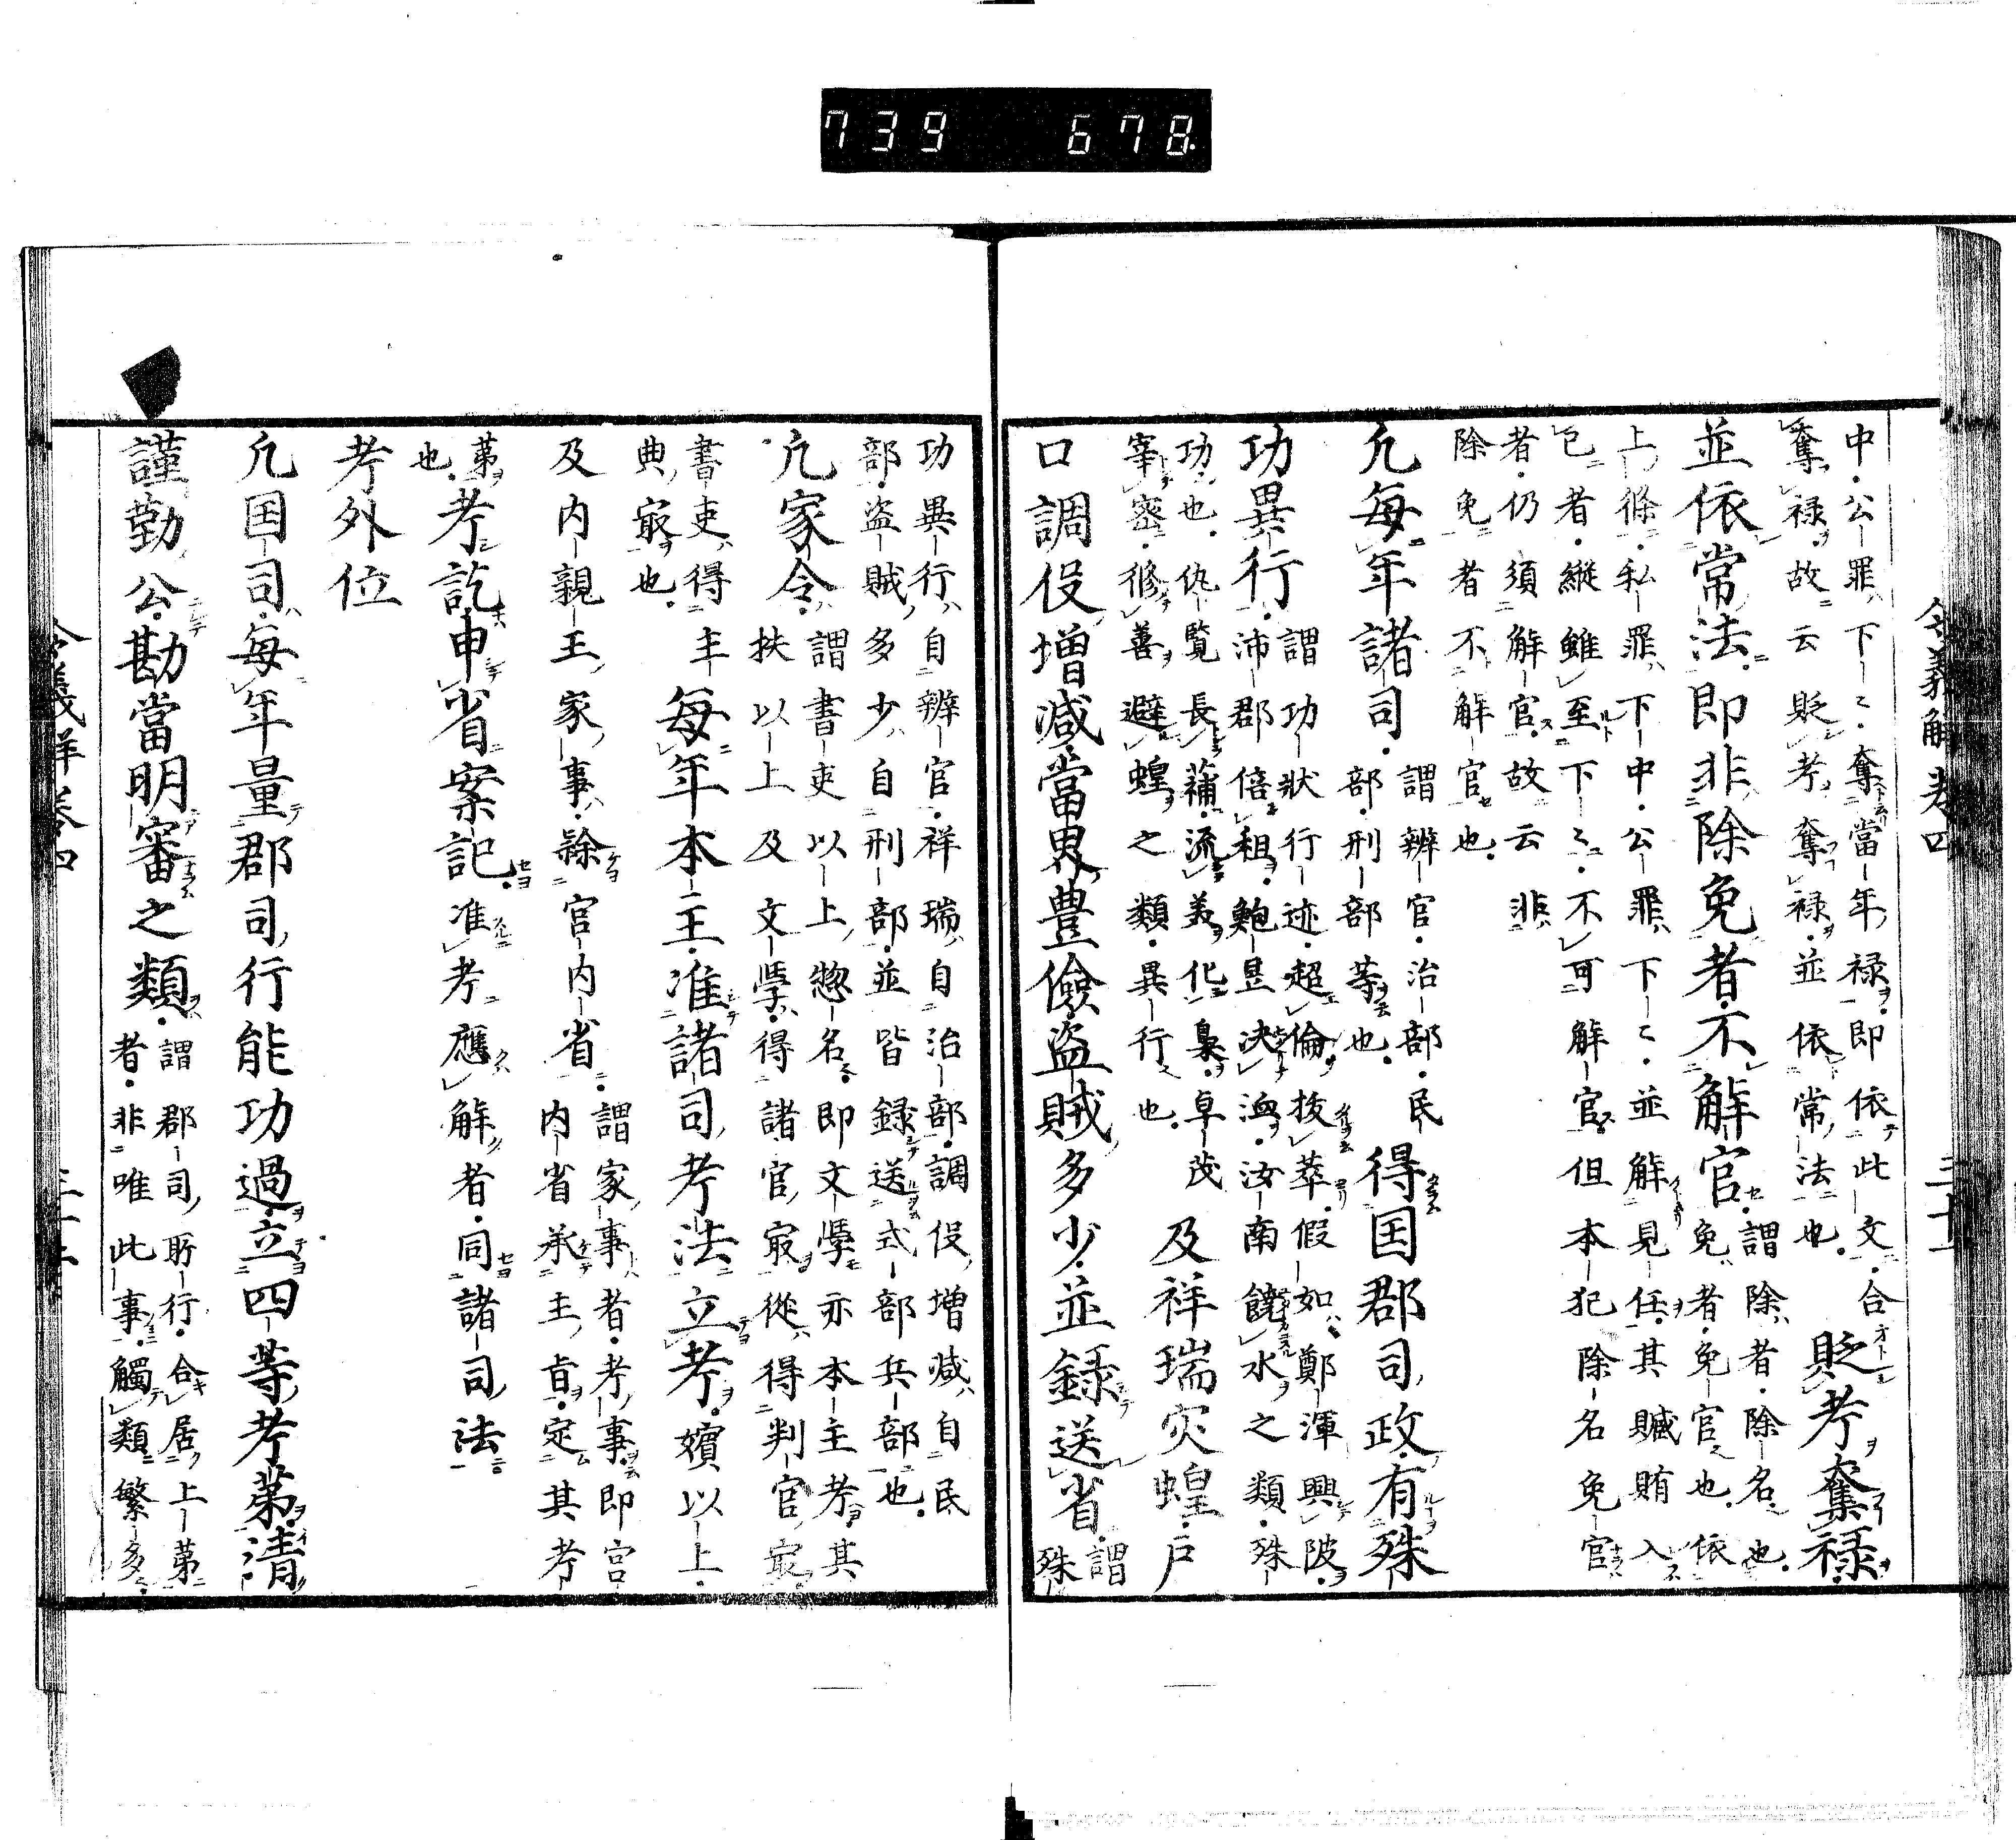 739 678
令義解卷四
中公罪下〻奪當年禄即依此文合
奪禄故云貶考奪禄並依常法也
貶考奪禄
並依常法即非除免者不解官
謂除者除名也
免者免官也依
上條私罪下中公罪下〻並解見任其贓賄入
已者縱雖至下〻不可解官但本犯除名免官
者仍須解官故云非
除免者不解官也
凢每年諸司
謂辨官治部民
部刑部等也
得国郡司政有殊
功異行
謂功狀行迹超倫拔萃假如鄭渾興陂
沛郡倍租鮑昱決洫汝南饒水之類殊
功也仇覧長蒲流義化梟卓茂
宰密修善避蝗之類異行也
及祥瑞灾蝗户
口調伇增减當界豊儉盗賊多少並録送省
謂
殊
功異行自辨官祥瑞自治部調伇增减自民
部盗賊多少自刑部並皆録送式部兵部也
凢家令
謂書吏以上惣名即文學亦本主考其
扶以上及文學得諸官冣從得判官冣
書吏得主
典冣也
每年本主准諸司考法立考嬪以上
及内親王家事隸官内省
謂家事者考事即宮
内省承主旨定其考
第
也
考訖申省案記准考應解者同諸司法
考外位
凢国司每年量郡司行能功過立四等考第清
謹勤公勘當明審之類
謂郡司所行合居上第
者非唯此事觸類繁多